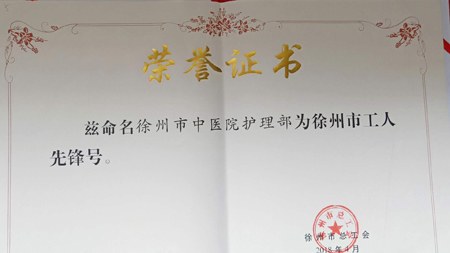 荣誉证书
兹命名徐州市中医院护理部为徐州市工人
先锋号。
徐州市总工会
2018年4月